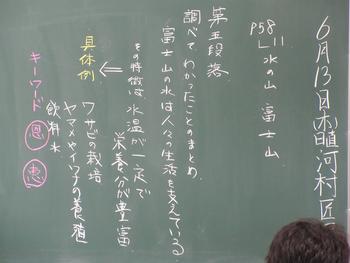 6月13日木曜 河村 匠
P58
L11
水の山 富士山
第五段落
調べて、わかったことのまとめ
富士山の水は人々の生活を支えている
その特徴は、水温が一定で
栄養分が豊富
⇐
具体例
ワサビの栽培
ヤマメやイワナの養殖
飲料水
キーワード 恩 恵